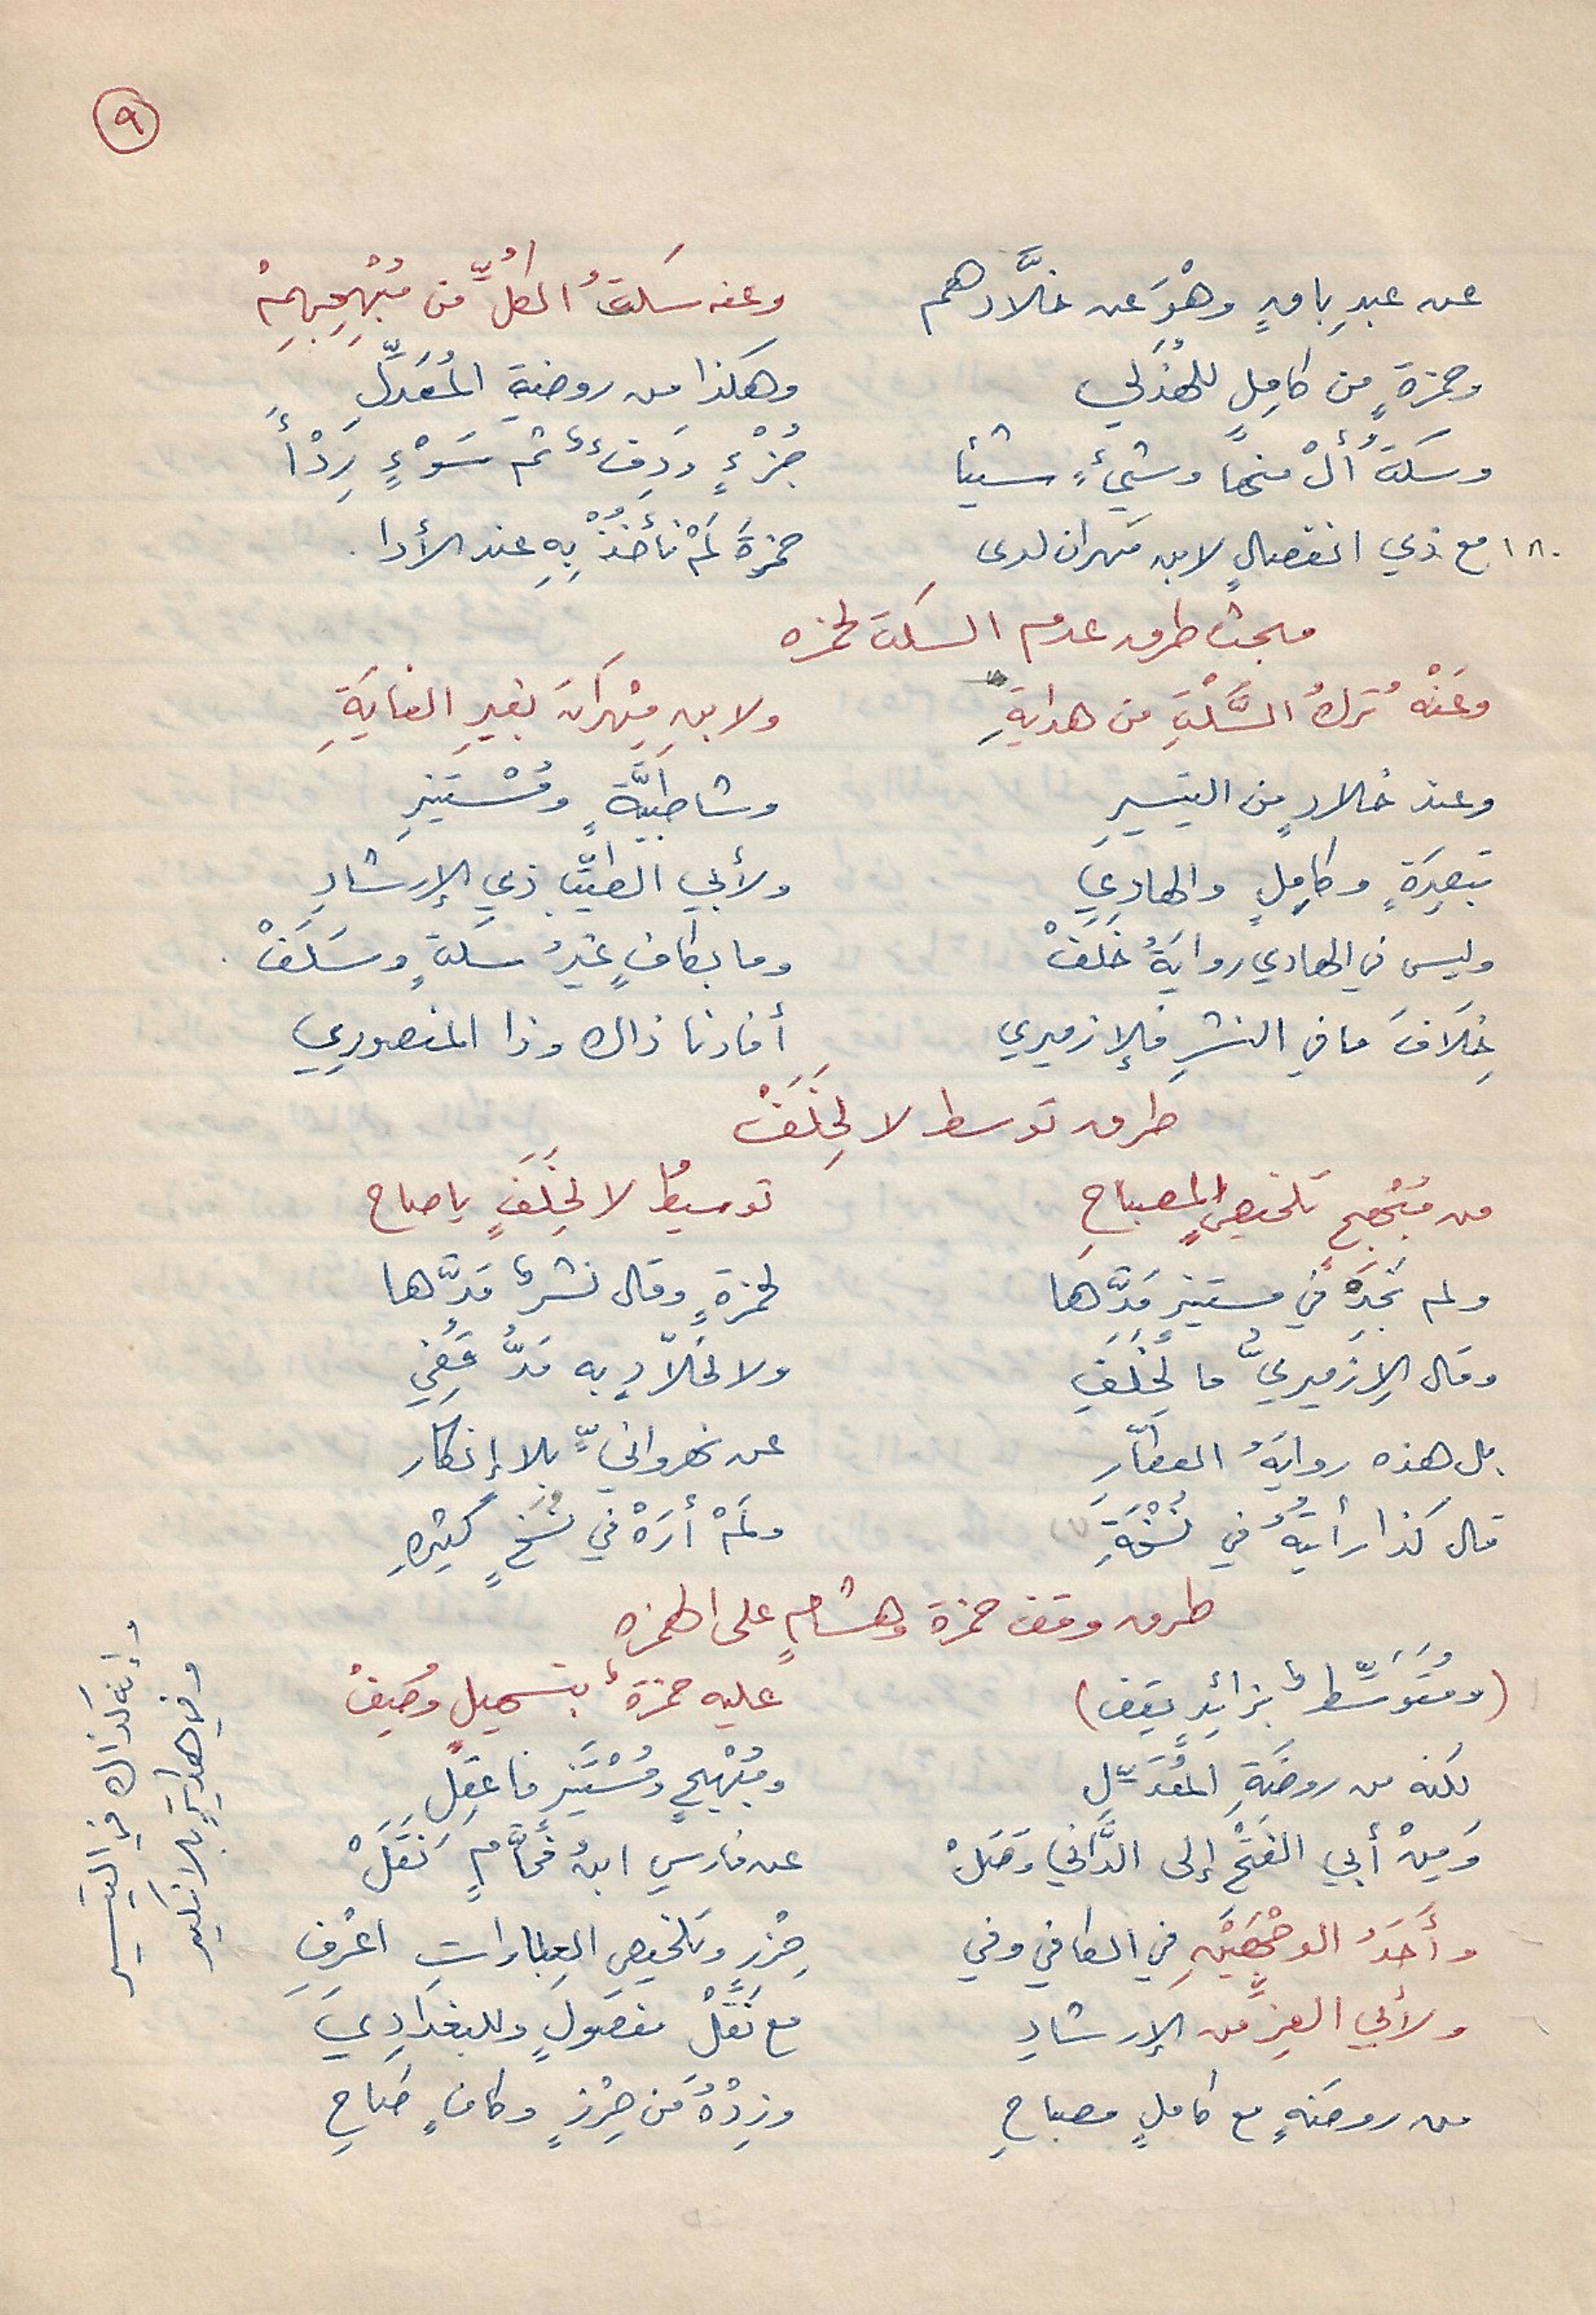 ٩
عن عبدِ باقٍ وهْوَ عن خلَّادهم وعنه سكتُ الكُلِّ من مُبْهِجِهِمْ
وحمزةٍ من كامِلٍ للهُذَلي وهكذا من روضةِ المُعَدَّلِ
وسكتُ أُلْ منها وشيءٍ شيئا جُزْءٍ ودِفءٌ ثم سَوْءٍ رِدْأً
١٨٠ مع ذي انفصالٍ لابن مهران لدى حمزةَ لَمْ نأخُذْ بِهِ عند الأدا .
مبحث طرق عدم السكت لحمزه
وعَنْهُ تركُ السَّكْتِ من هدايةِ ولابنِ مِهْرَانَ بغيرِ الغايَةِ
وعند خلادٍ من التيسيرِ وشاطبيَّةٍ ومُسْتَنيرِ
تبصِرَةٍ وكامِلٍ والهادِي ولأبي الطيِّبِ ذي الإرشادِ
وليس في الهادي روايةُ خَلَفْ وما بكافٍ غيْرُ سكتٍ وسَلَفْ .
خِلَافَ ما في النشرِ فالإزميري أفادنا ذاك وذا المنصورِي
طرق توسط لا لِخَلَفْ
من مُبْهِجٍ تلخيصٍ المصباحِ توسيطُ لا لِخَلَفٍ يا صاح
ولم نَجِدْ في مستنيرٍ مَدَّها لحمزةٍ وقال نشرٌ مَدَّها
وقال الإزميريُّ ما لِخَلَفِ ولا لخلّادٍ به مَدٌّ قُفِي
بل هذه روايةُ العطّارِ عن نهروانيٍّ بلا إنكار
قال كذا رأيتُهُ في نُسْخَةِ ولَمْ أرَهْ في نُسَخٍ كثيرهِ
طرق وقف حمزة وهشامٍ على الهمزه
(ومُتَوَسِّطٌ بزائدٍ يقِف) عليه حمزةٌ بتسهيلٍ وُصِفْ
لكنه من روضَةِ المُعَدَّلِ ومُبْهِجٍ ومُسْتَنيرٍ فاعقِلِ
وَمِنْ أبي الفَتْحِ إلى الدَّاني وَصَلْ عن فارسِ ابنُ فَحَّامٍ نَقَلْ
وأَحَدُ الوجْهَيْنِ في الكافي وفي حِرْزٍ وتلخيصِ العباراتِ اعْرِفِ
ولأبي العِزِّ من الإرشادِ مع نَقْلْ مفصولٍ وللبغدَادِي
من روضَةٍ مع كاملٍ مصباحِ وزِدْهُ من حِرْزٍ وكافٍ صَاحِ
وإنه كذاك في التيسير
وفي هدايةٍ بلا نكير